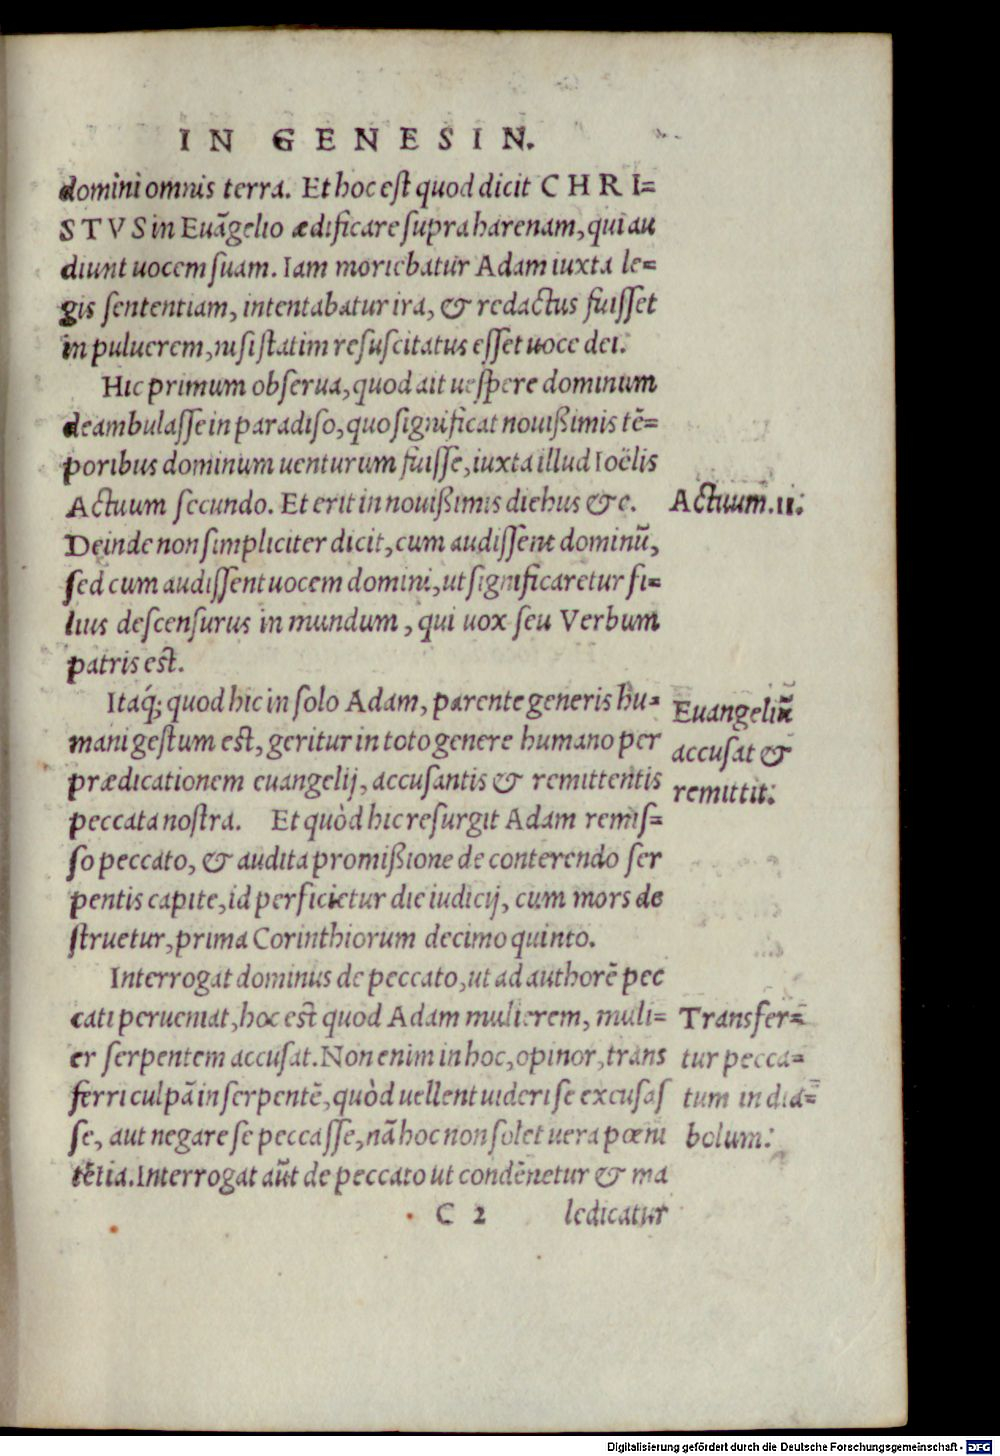 IN GENESIN.
domini omnis terra. Et hoc est quod dicit CHRI=
STVS in Euāgelio ædificare supra harenam, qui au
diunt uocem suam. Iam moriebatur Adam iuxta le=
gis sententiam, intentabatur ira, & redactus fuisset
in puluerem, nisi statim resuscitatus esset uoce dei.
Hic primum obserua, quod ait uespere dominum
deambulasse in paradiso, quo significat nouißimis tē=
poribus dominum uenturum fuisse, iuxta illud Ioëlis
Actuum secundo. Et erit in nouißimis diebus &c.
Actuum.ii.
Deinde non simpliciter dicit, cum audissent dominū,
sed cum audissent uocem domini, ut significaretur fi=
lius descensurus in mundum, qui uox seu Verbum
patris est.
Itaq́; quod hic in solo Adam, parente generis hu=
mani gestum est, geritur in toto genere humano per
prædicationem euangelij, accusantis & remittentis
peccata nostra. Et quòd hic resurgit Adam remis=
so peccato, & audita promißione de conterendo ser
pentis capite, id perficietur die iudicij, cum mors de
struetur, prima Corinthiorum decimo quinto.
Euangeliū
accusat &
remittit.
Interrogat dominus de peccato, ut ad authorē pec
cati perueniat, hoc est quod Adam mulierem, muli=
er serpentem accusat. Non enim in hoc, opinor, trans
ferri culpā in serpentē, quòd uellent uideri se excusas
se, aut negare se peccasse, nā hoc non solet uera pœni
tētia. Interrogat aūt de peccato ut condēnetur & ma
Transfer=
tur pecca=
tum in dia=
bolum.
C 2 ledicatur
Digitalisierung gefördert durch die Deutsche Forschungsgemeinschaft - DFG